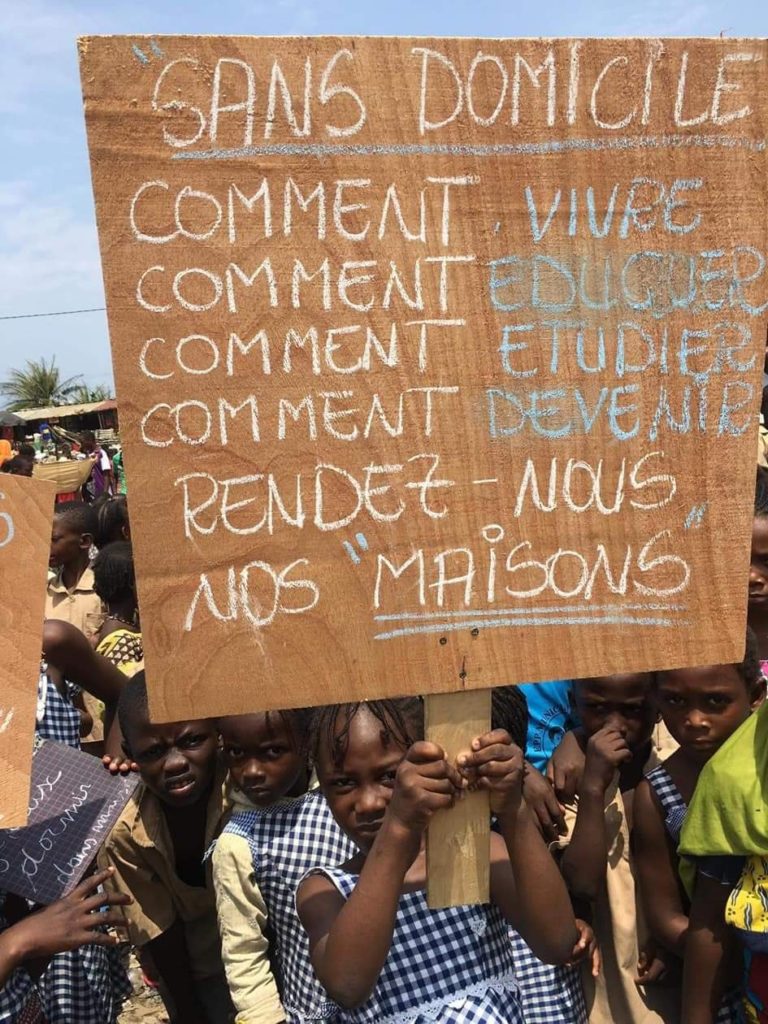 "SANS DOMICILE
COMMENT VIVRE
COMMENT EDUQUER
COMMENT ETUDIER
COMMENT DEVENIR
RENDEZ-NOUS
NOS "MAISONS"
dormir
dans